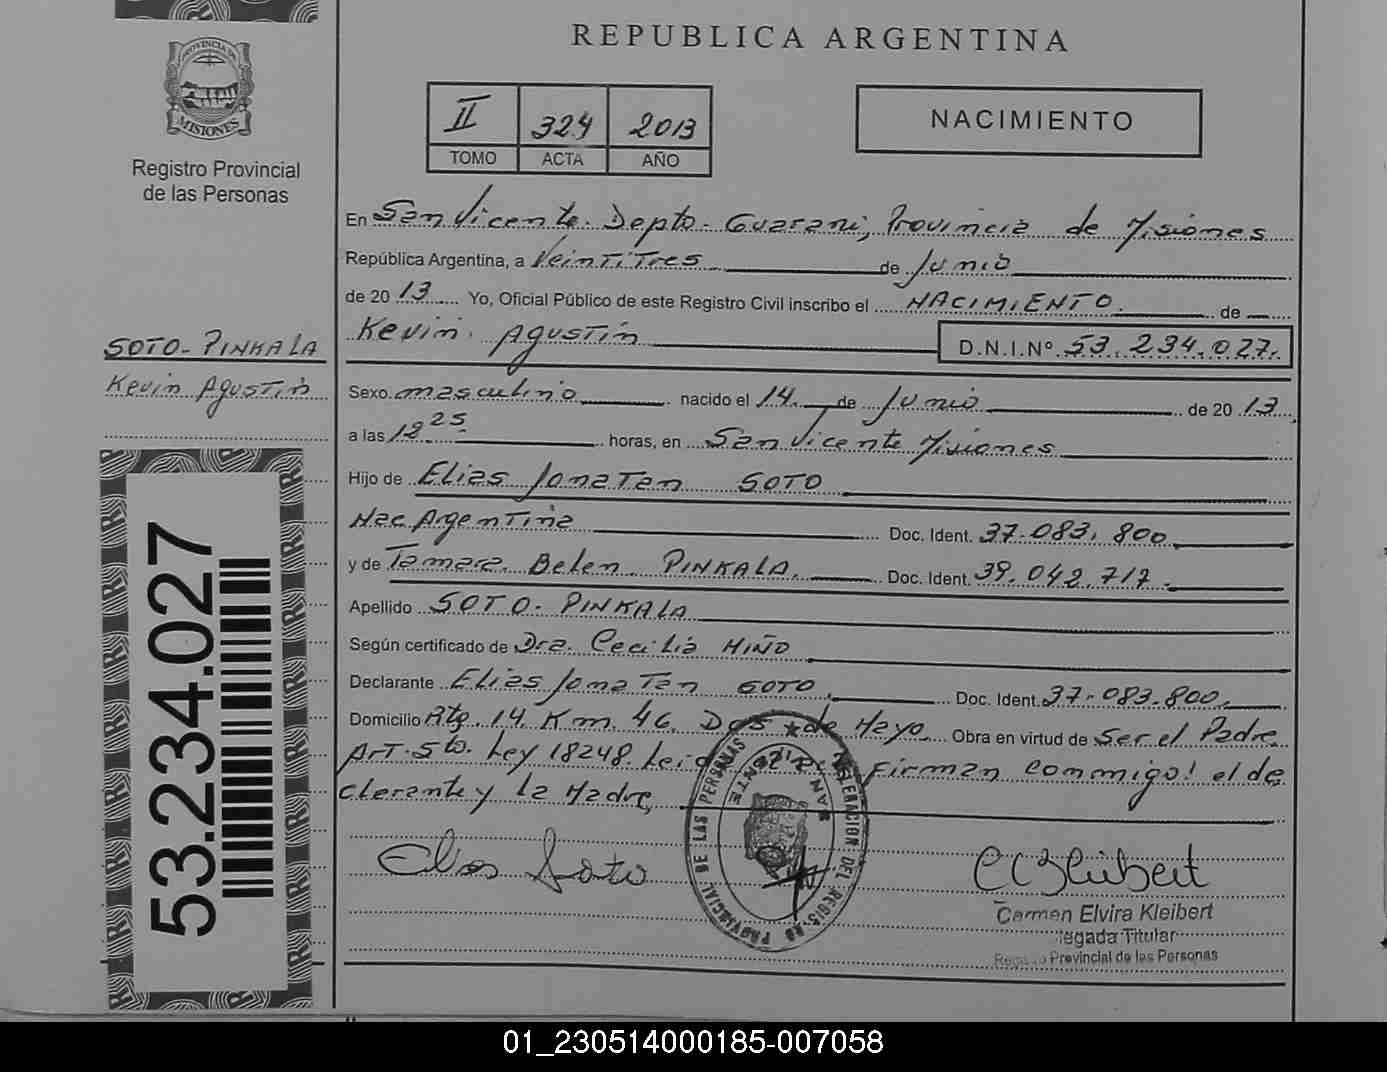 PROVINCIA DE
MISIONES
Registro Provincial
de las Personas
SOTO-PINKALA
Kevin Agustin
53.234.027
REPUBLICA ARGENTINA
II 324 2013
TOMO ACTA AÑO
NACIMIENTO
En San Vicente. Depto- Guarani, Provincia de Misiones
República Argentina, a Veintitres de Junio
de 2013 Yo, Oficial Público de este Registro Civil inscribo el NACIMIENTO. de
Kevin. Agustín D.N.I.Nº 53.234.027.
Sexo masculino nacido el 14. de Junio de 2013
a las 12 25. horas, en San Vicente Misiones
Hijo de Elias Jonatan SOTO
Nac Argentina Doc. Ident. 37.083.800
y de Tamara Belen PINKALA. Doc. Ident. 39.042.717.
Apellido SOTO-PINKALA
Según certificado de Dra. Cecilia MIÑO
Declarante Elias Jonatan SOTO. Doc. Ident. 37-083.800.
Domicilio Rta. 14 Km. 46. Dos de Mayo. Obra en virtud de Ser el Padre
Art. 5to. Ley 18248. Firman conmigo! el de
clarante y la Madre,
Elias Soto
C E Kleibert
Carmen Elvira Kleibert
legada Titular
Provincial de las Personas
PROVINCIAL DE LAS PERSONAS
01_230514000185-007058